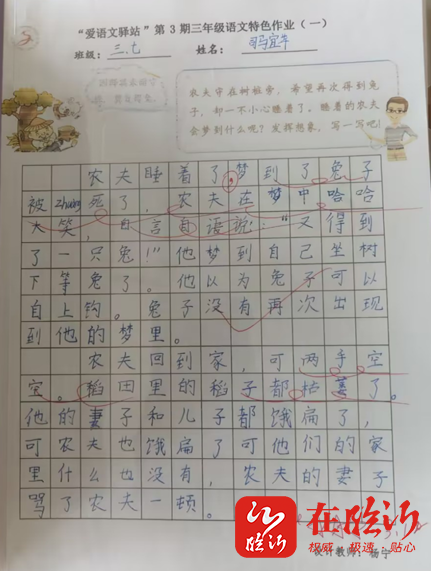 “爱语文驿站”第3期三年级语文特色作业(一)
班级: 三.七 姓名: 司马宜牛
农夫守在树桩旁,希望再次得到兔
子,却一不小心睡着了。睡着的农夫
会梦到什么呢?发挥想象,写一写吧!
农夫睡着了梦到了兔子
被zhuàng死了,农夫在梦中哈哈
大笑,自言自语说:“又得到
了一只兔!”他梦到自己坐树
下等兔了。他以为兔子可以
自上钩。兔子没有再次出现
到他的梦里。
农夫回到家,可两手空
空。稻田里的稻子都枯萎了。
他的妻子和儿子都饿扁了,
可农夫也饿扁了可他们的家
里什么也没有,农夫的妻子
骂了农夫一顿。
在临沂
临沂
权威 极速 贴心
设计教师:杨宁